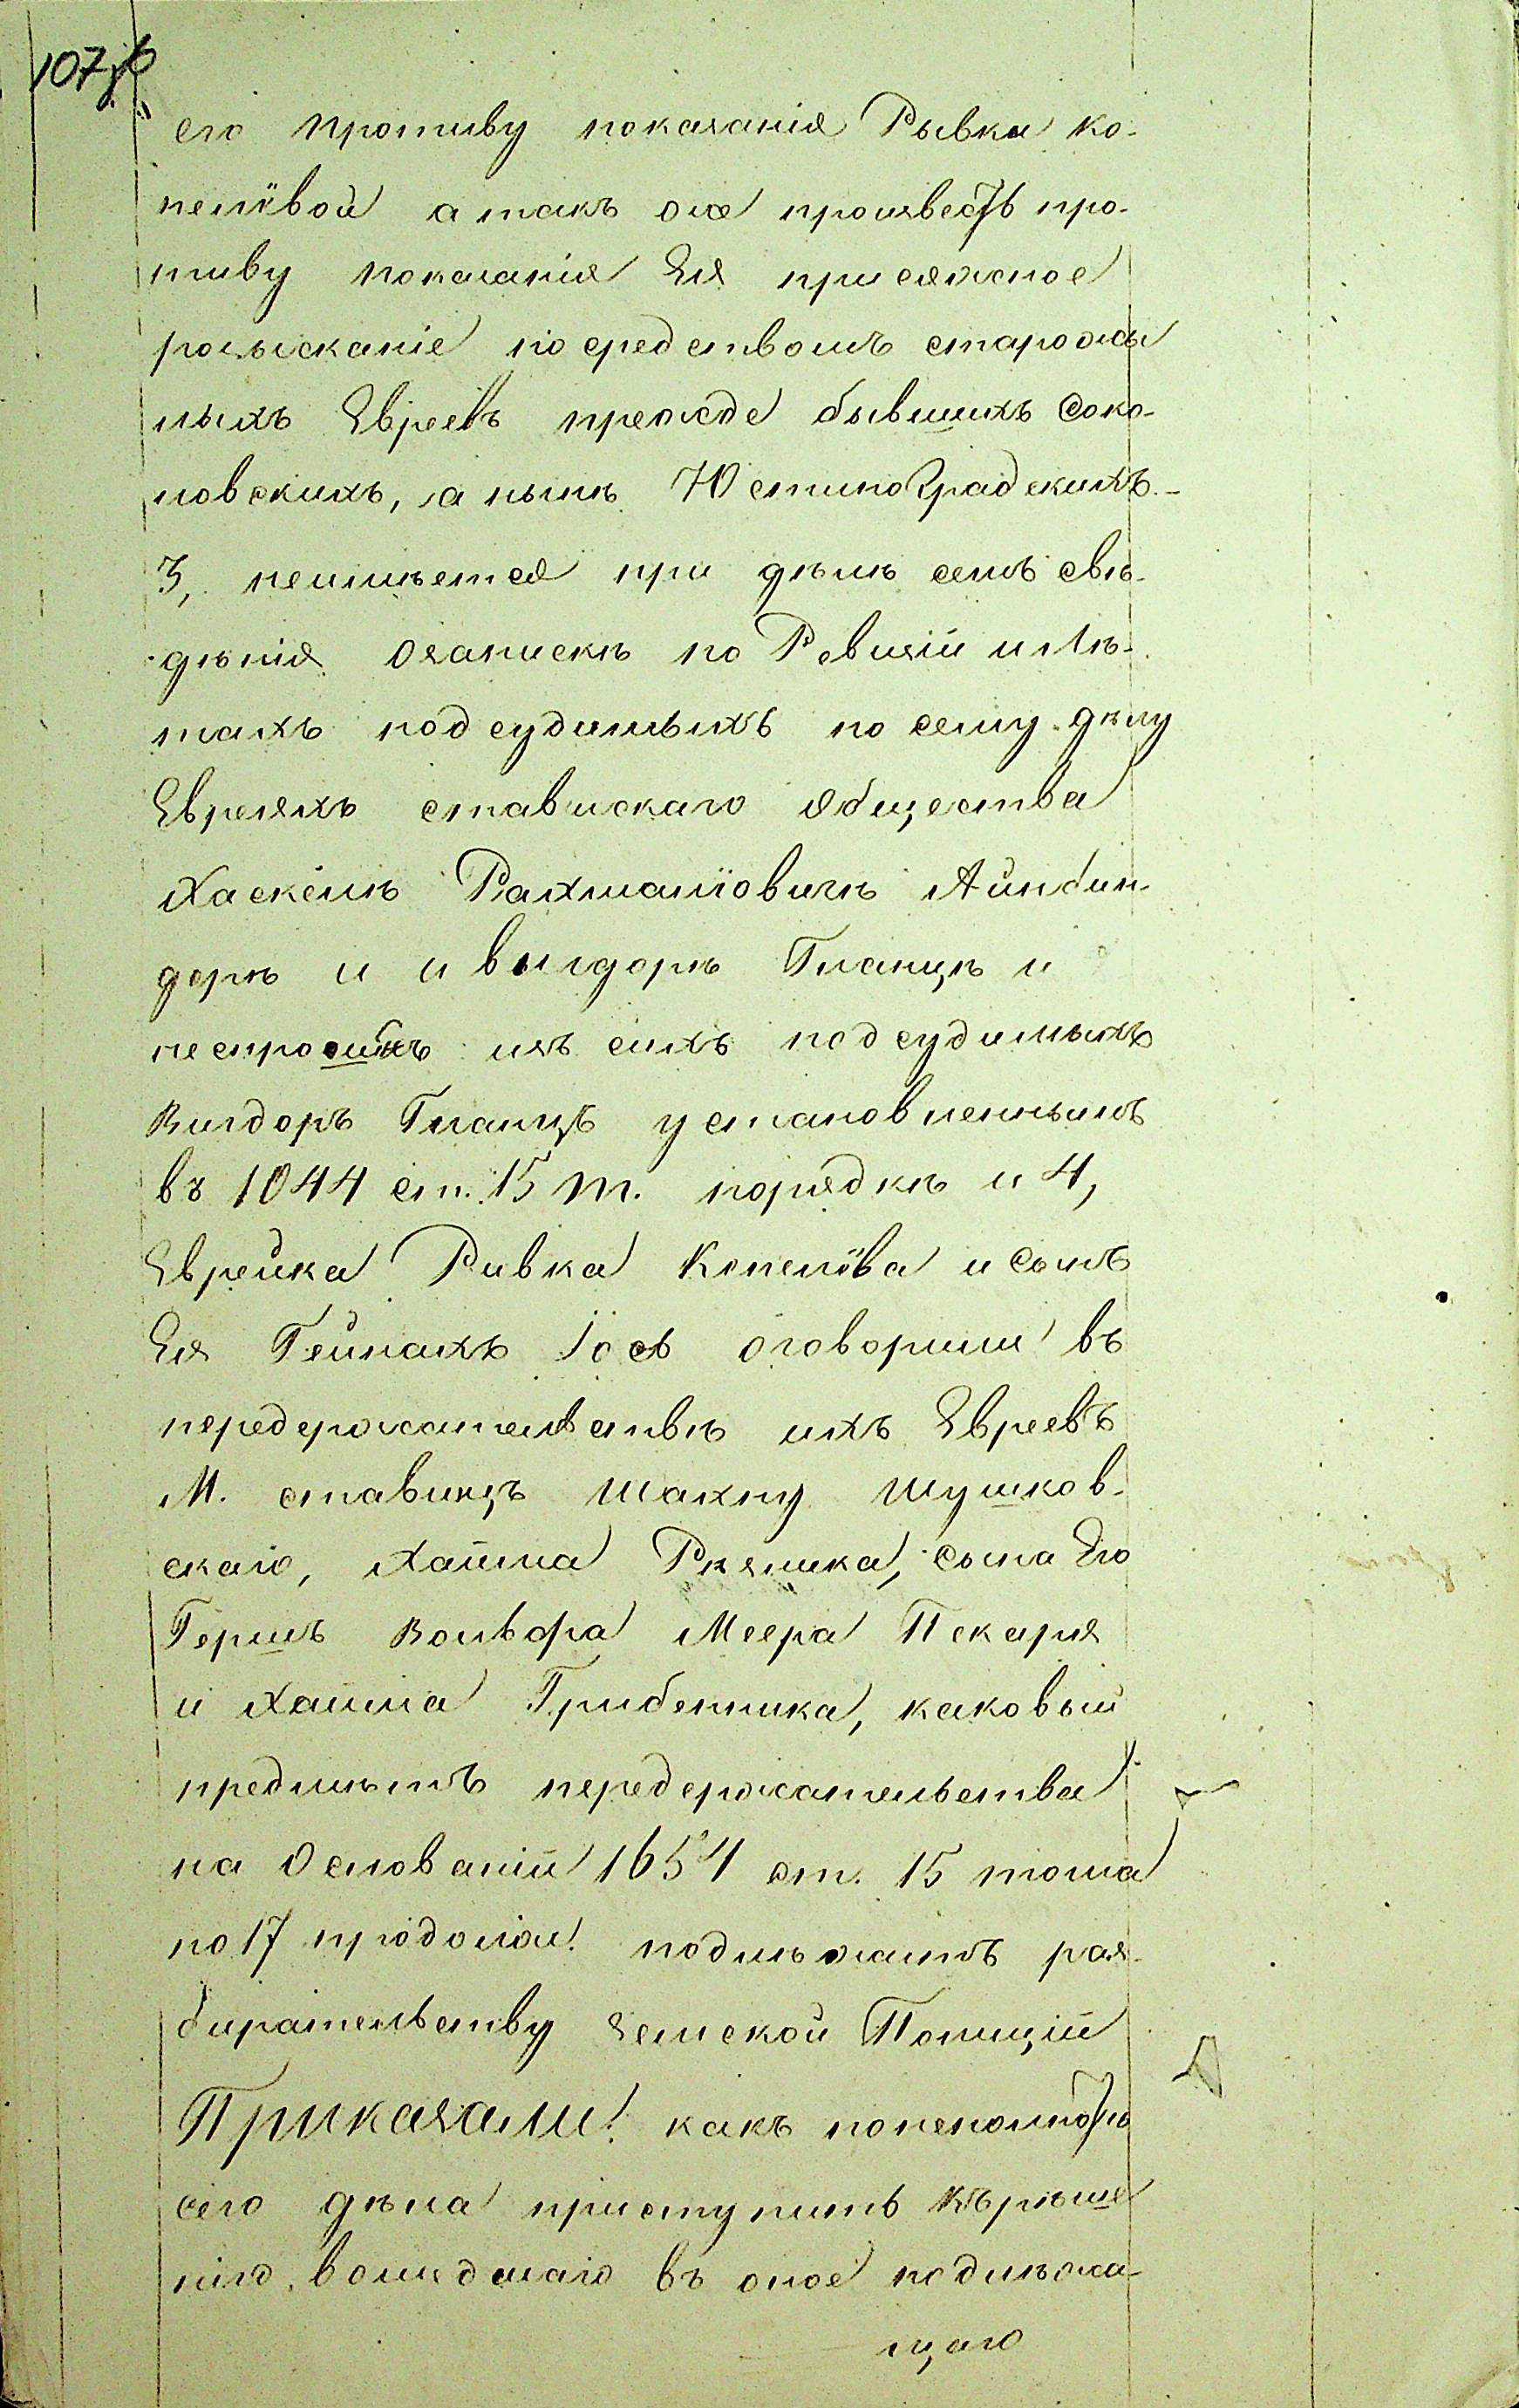 107 об
его противу показанія Рывки Ко-
пелiовой а такъ же произвесть про-
тиву показанія Ея присяжное
розысканіе посредствомъ старожи
лыхъ Евреевъ прежде бывшихъ Соко-
ловскихъ, а нынѣ Юстиноградскихъ.-
3, неимѣется при дѣлѣ семъ свѣ-
дѣнія озапискѣ по Ревизіи и лѣ-
тахъ подсудимыхъ по сему дѣлу
Евреяхъ ставискаго Общества
Хаскелѣ Рахмаліовичѣ Айнбин-
дерѣ и и вигдорѣ Гланцѣ и
неспрошенъ изъ сихъ подсудимыхъ
Вигдоръ Гланцъ установленнымъ
въ 1044 ст. 15 т. порядкѣ и 4,
Еврейка Ривка Копелiова и Сынъ
Ея Гейнахъ Іось оговорили въ
передержательствѣ ихъ Евреевъ
М. ставищъ Шахну Шушков-
скаго, Хаима Рѣзника, сына Его
Гершъ Вольфа Меера Пекаря
и Хаима Грибенника, каковый
предмѣтъ передержательства
на Основаніи 1654 ст. 15 тома
по 17 продолж. подлѣжитъ раз-
бирательству Земской Полиціи
Приказали: какъ понеполнотѣ
сего дѣла приступить кърѣше
нію, вошедшаго въ оное подлѣжа-
щаго